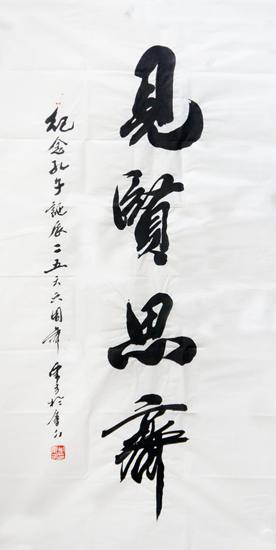 見賢思齊
紀念孔子誕辰二五六六周年